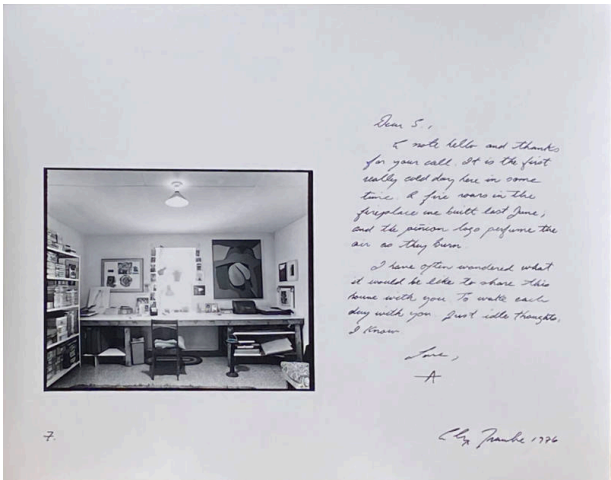 Dear S.,
A note hello and thanks
for your call. It is the first
really cold day here in some
time. A fire roars in the
fireplace we built last June,
and the pinion logs perfume the
air as they burn.
I have often wondered what
it would be like to share this
house with you. To wake each
day with you. Just idle thoughts,
I know
Love,
A
7.
1976